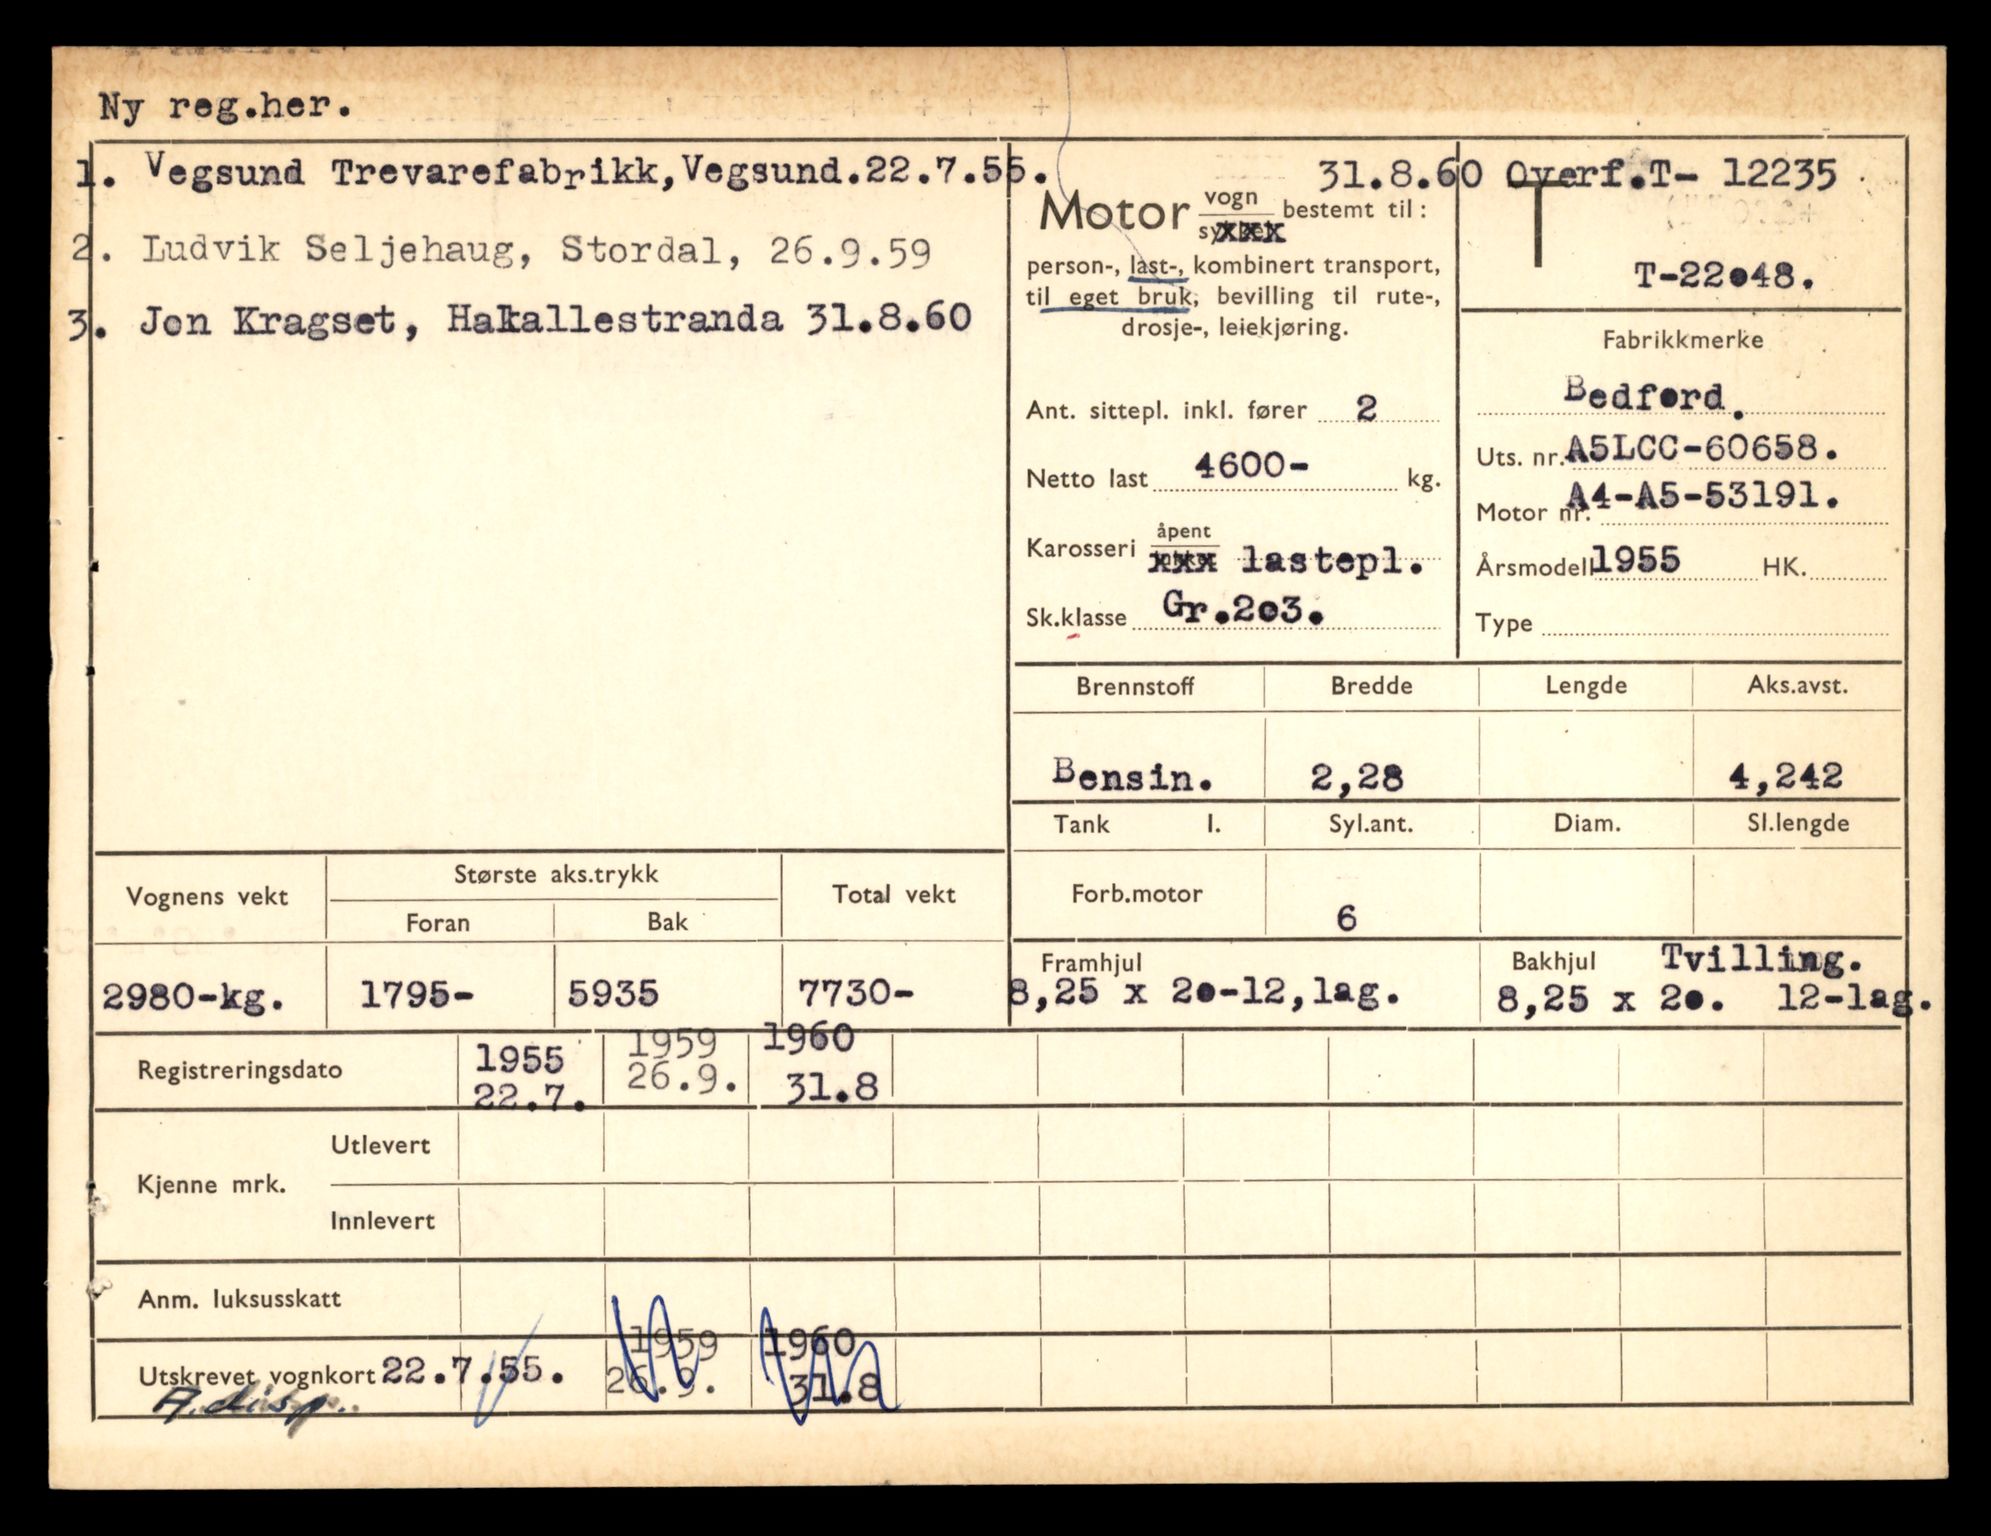 Ny reg.her.
1. Vegsund Trevarefabrikk,Vegsund.22.7.55.
2. Ludvik Seljehaug, Stordal, 26.9.59
3. Jon Kragset, Hakallestranda 31.8.60
31.8.60 Overf.T- 12235
Motor vogn bestemt til:
xxx
person-, last-, kombinert transport,
til eget bruk, bevilling til rute-,
drosje-, leiekjøring.
Ant. sittepl. inkl. fører 2
Netto last 4600- kg.
Karosseri åpent
xxx lastepl.
Sk.klasse Gr.2o3.
T
T-22o48.
Fabrikkmerke
Bedford.
Uts. nr. A5LCC-60658.
Motor nr. A4-A5-53191.
Årsmodell 1955 HK.
Type
Brennstoff Bredde Lengde Aks.avst.
Bensin. 2,28 4,242
Tank l. Syl.ant. Diam. Sl.lengde
Forb.motor 6
Framhjul
8,25 x 2o-12,lag.
Bakhjul Tvilling.
8,25 x 2o. 12-lag.
Vognens vekt Største aks.trykk Total vekt
Foran Bak
2980-kg. 1795- 5935 7730-
Registreringsdato
1955 1959 1960
22.7. 26.9. 31.8
Kjenne mrk.
Utlevert
Innlevert
Anm. luksusskatt
1959 1960
Utskrevet vognkort 22.7.55. 26.9. 31.8
A.disp.